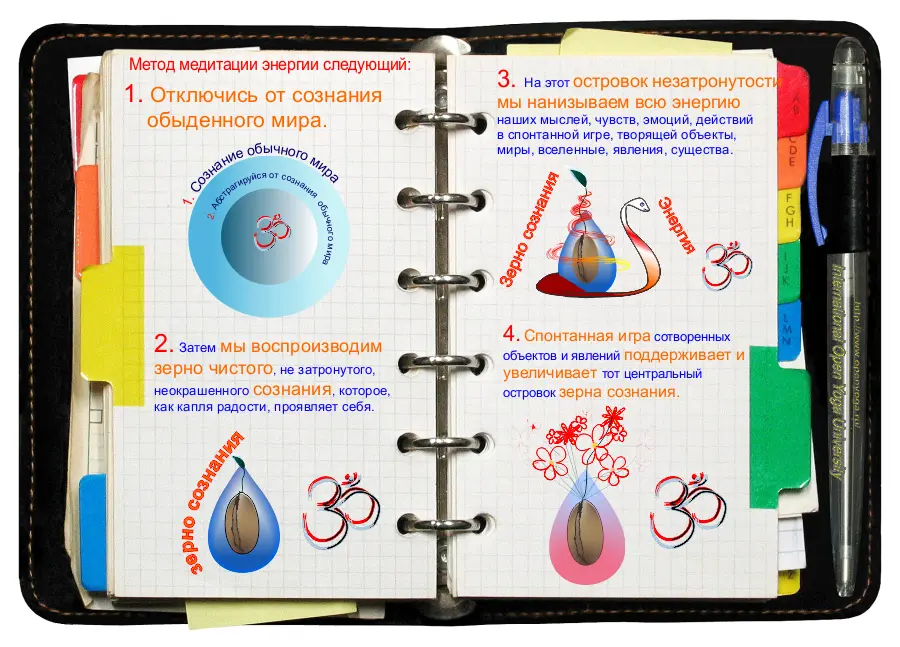 Метод медитации энергии следующий:
1. Отключись от сознания
обыденного мира.
1. Сознание обычного мира
2. Абстрагируйся от сознания обычного мира
2. Затем мы воспроизводим
зерно чистого, не затронутого,
неокрашенного сознания, которое,
как капля радости, проявляет себя.
Зерно сознания
3. На этот островок незатронутости
мы нанизываем всю энергию
наших мыслей, чувств, эмоций, действий
в спонтанной игре, творящей объекты,
миры, вселенные, явления, существа.
Зерно сознания
Энергия
4. Спонтанная игра сотворенных
объектов и явлений поддерживает и
увеличивает тот центральный
островок зерна сознания.
ॐ
ॐ
ॐ
ॐ
C
D
E
F
G
H
I
J
K
L
M
N
http://www.openyoga.ru/
International Open Yoga University